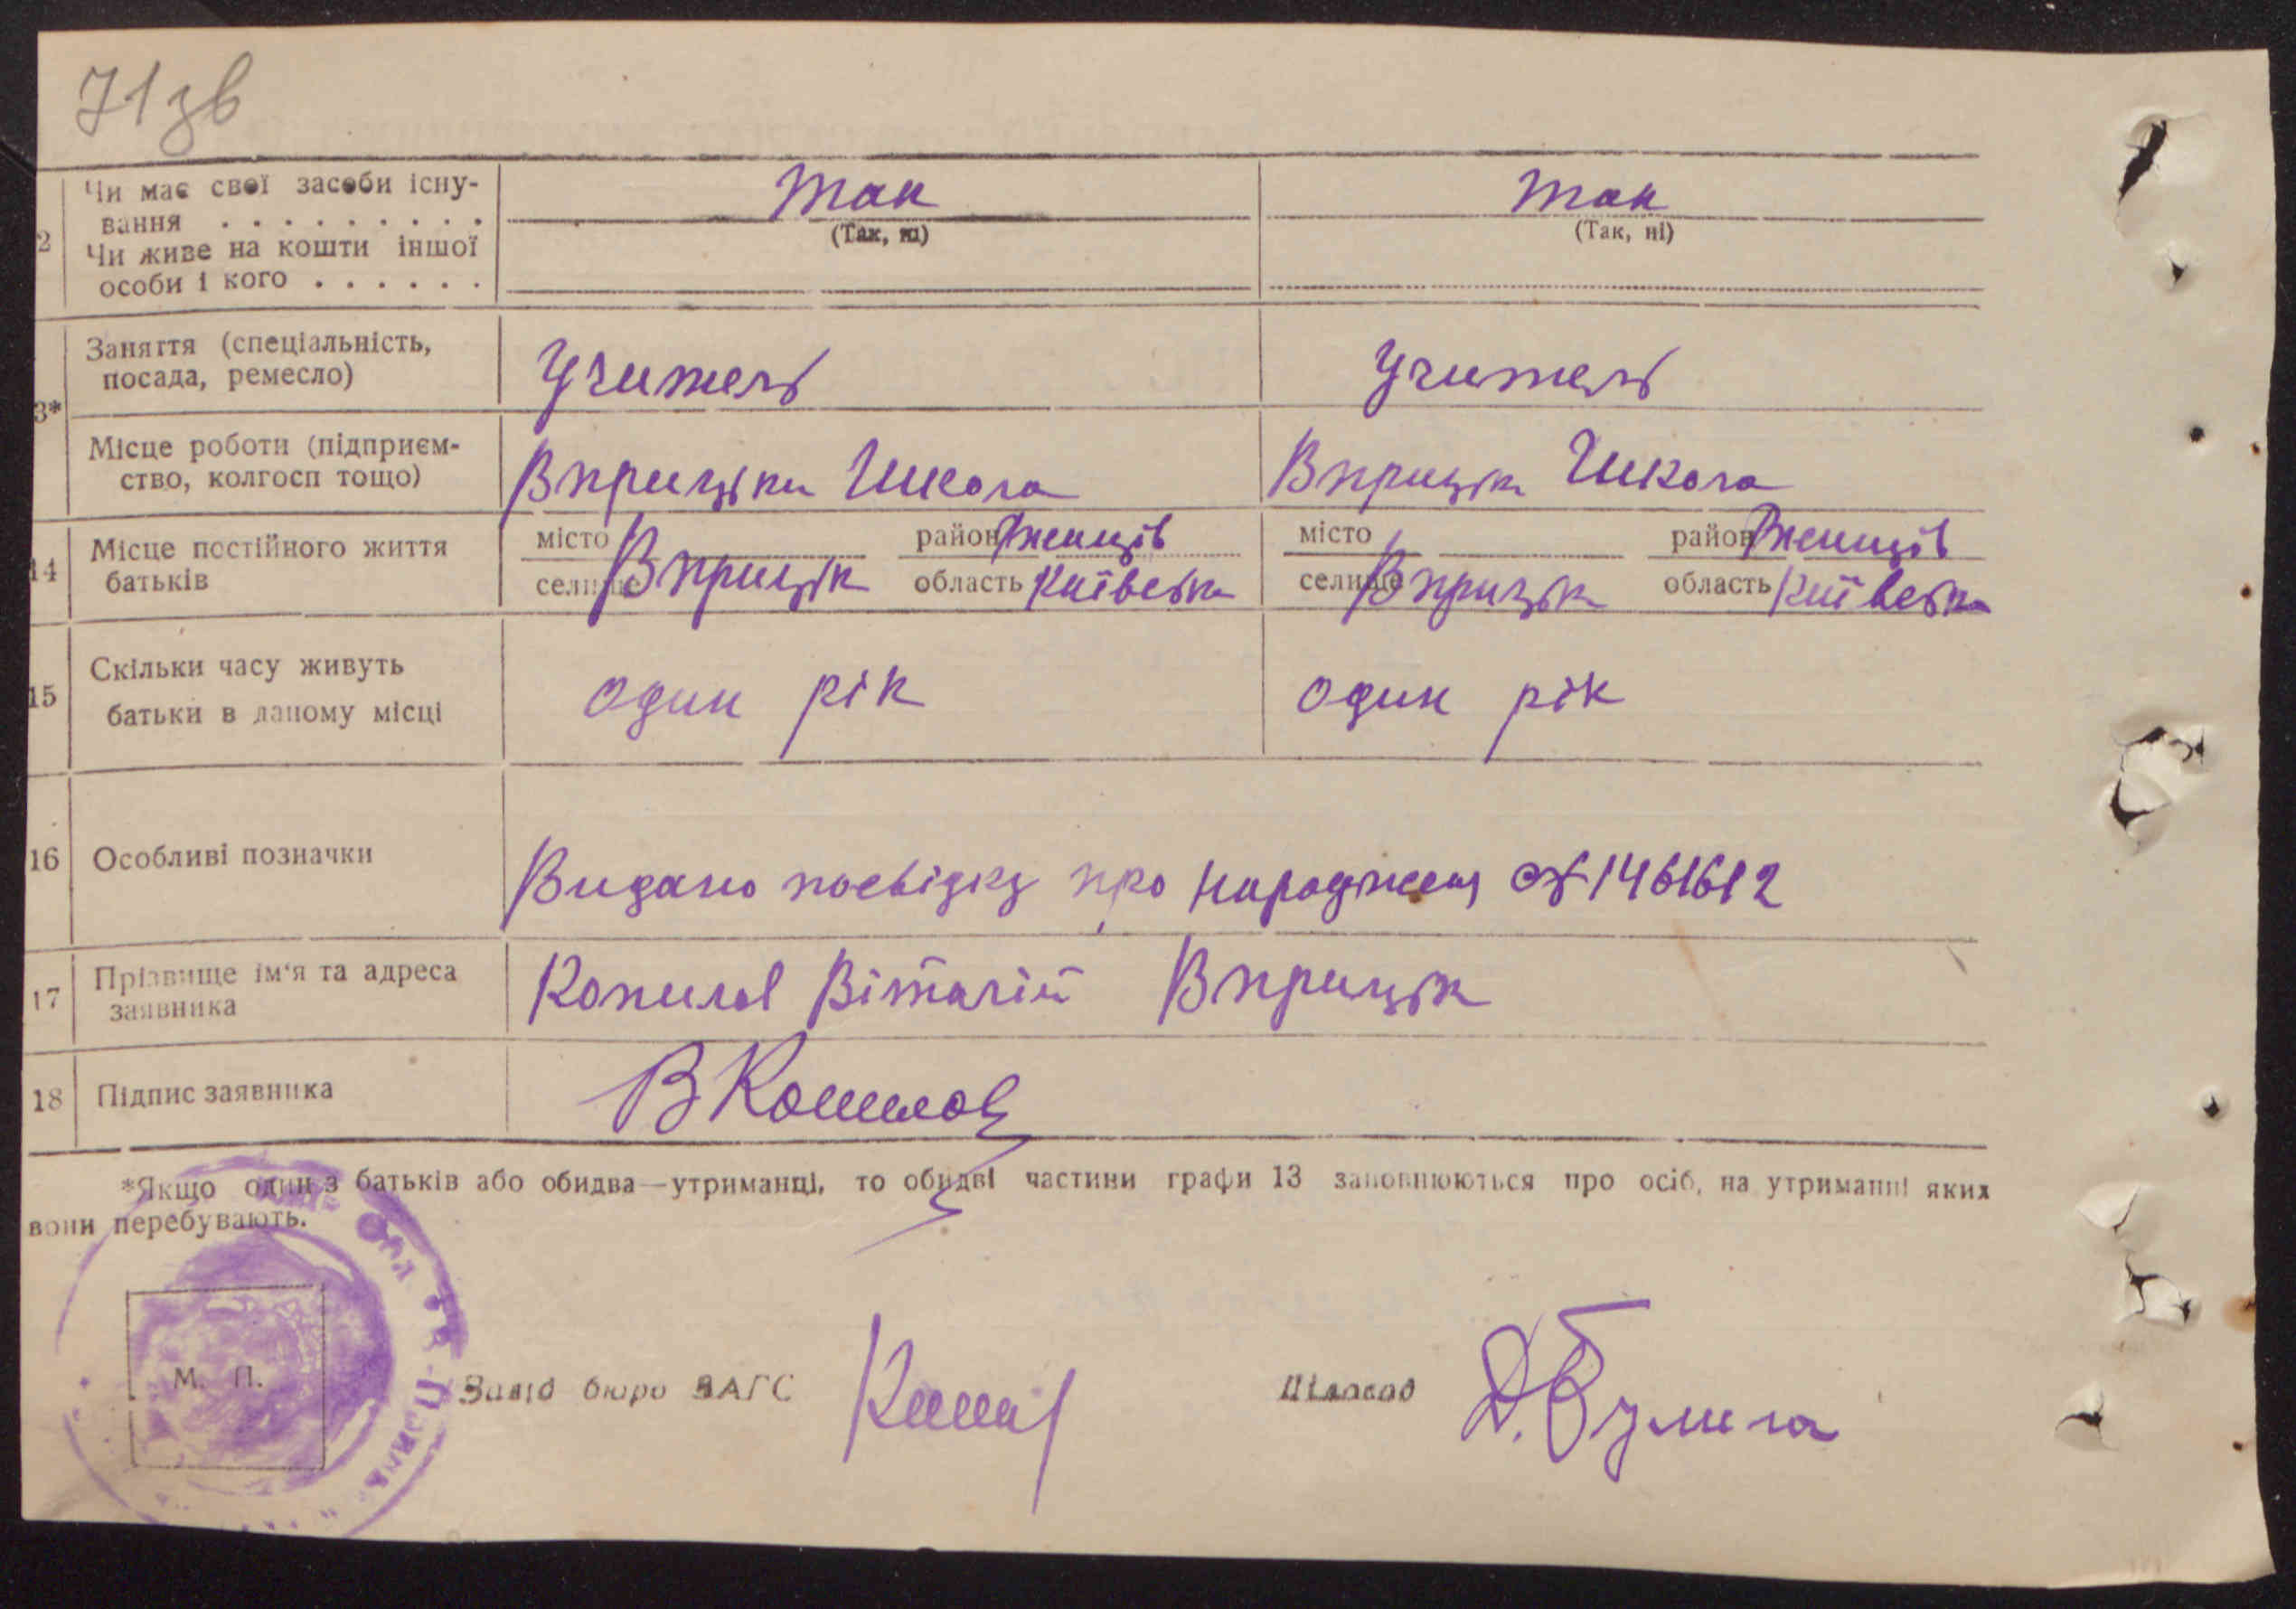 71зв
2 Чи має свої засоби існу-
вання . . . . . . . . . Так Так
(Так, ні) (Так, ні)
Чи живе на кошти іншої
особи і кого . . . . . .
3* Заняття (спеціальність,
посада, ремесло) Учитель Учитель
Місце роботи (підприєм-
ство, колгосп тощо) Школа Школа
14 Місце постійного життя
батьків
місто район місто район
селище область Київська селище область Київська
15 Скільки часу живуть
батьки в даному місці один рік один рік
16 Особливі позначки Видано посвідку про № 1461612
17 Прізвище ім'я та адреса
заявника Копилов Віталій
18 Підпис заявника
*Якщо один з батьків або обидва—утриманці, то обидві частини графи 13 заповнюються про осіб, на утриманні яких
вони перебувають.
М. П. Завід бюро ЗАГС Діловод